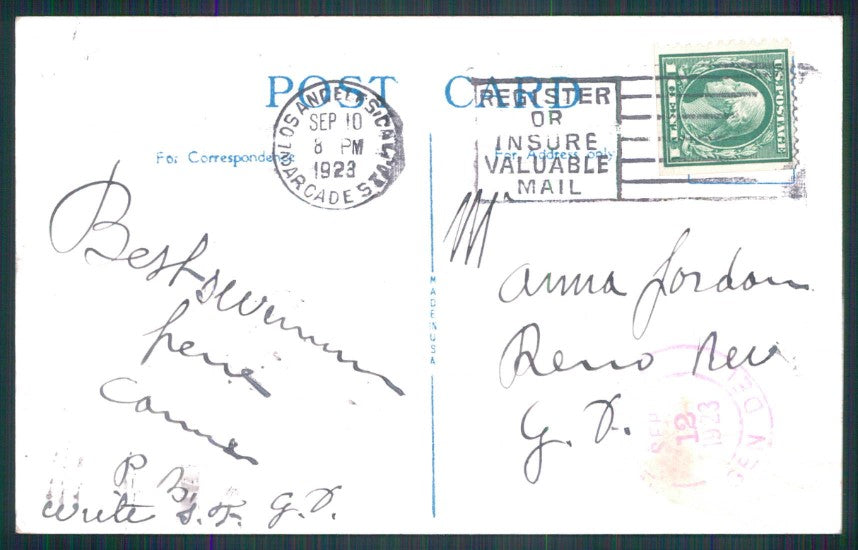 POST CARD
LOS ANGELES, CAL.
SEP 10
8 PM
1923
ARCADE STA.
REGISTER
OR
INSURE
VALUABLE
MAIL
U.S. POSTAGE
1 CENT 1
For Correspondence
For Address only
Best swimmin
here
P. B.
Write S. F. G. D.
MADE IN USA
Anna Jordan
Reno Nev
G. D.
GEN DEL
SEP
12
1923